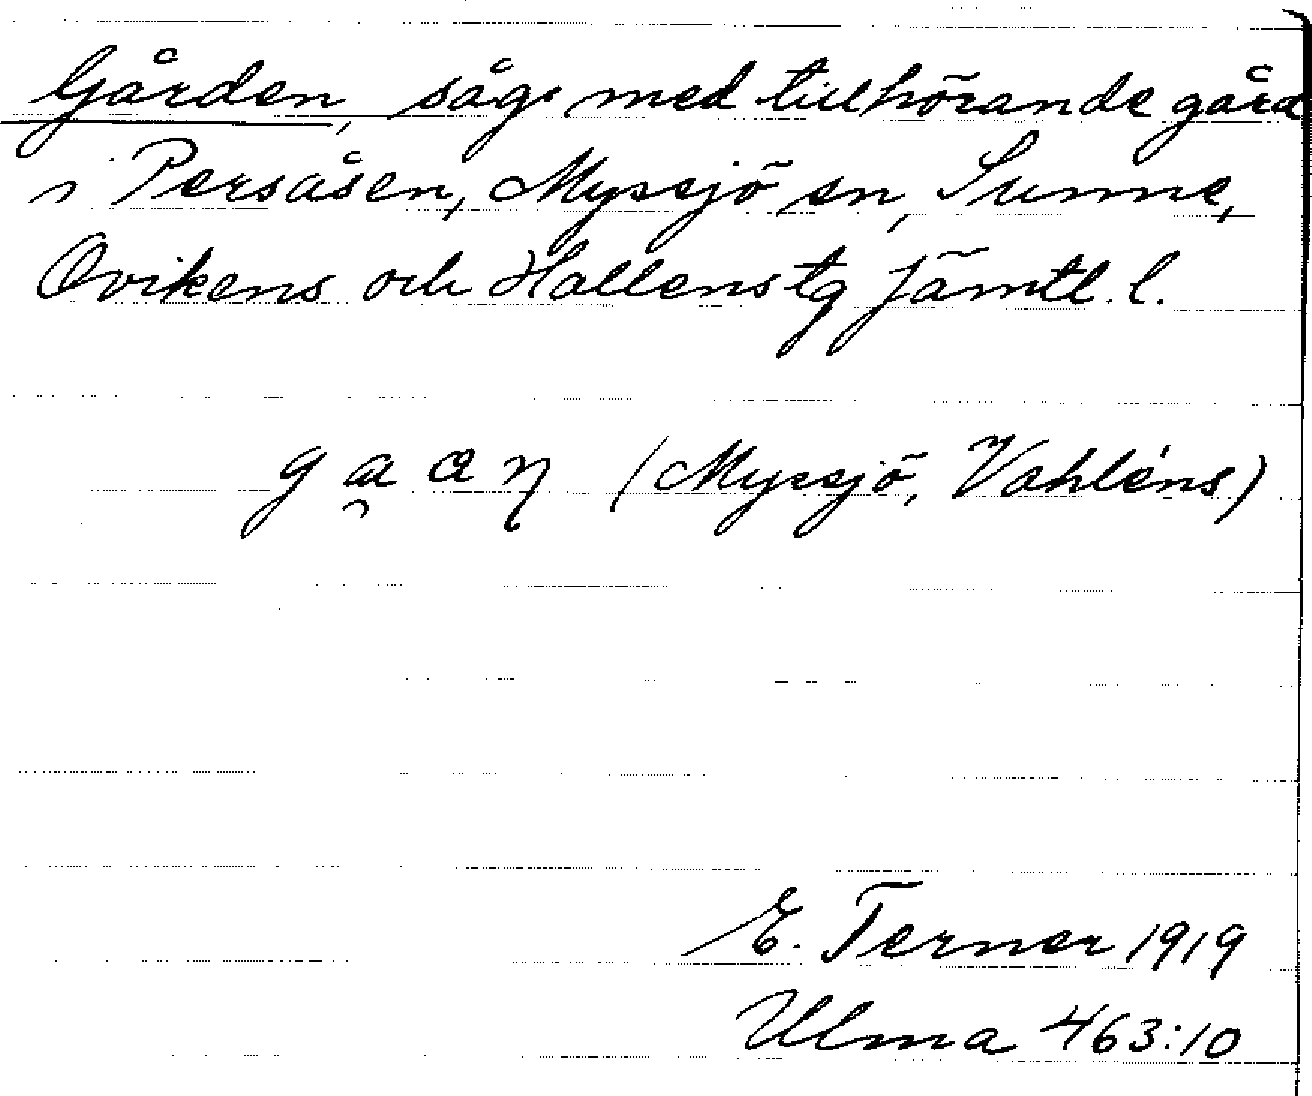 Gården, såg med tillhörande gård
i Persåsen, Myssjö sn, Sunne,
Ovikens och Hallens tg Jämtl. l.
g a̯ a n (Myssjö, Vahléns)
E. Terner 1919
Ulma 463:10